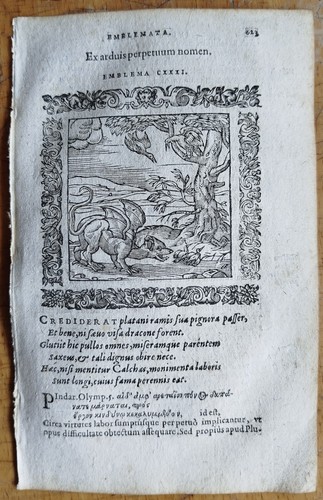 EMBLEMATA. 613
Ex arduis perpetuum nomen.
EMBLEMA CXXXI.
CREDIDERAT platani ramis sua pignora passer,
Et bene, ni sævo visa dracone forent.
Glutiit hic pullos omnes, miseramque parentem
Saxeus, & tali dignus obire nece.
Hæc, nisi mentitur Calchas, monimenta laboris
Sunt longi, cuius fama perennis eat.
PIndar. Olymp.
id est,
Circa virtutes labor sumptusque perpetuò implicantur, vt
opus difficultate obtectum assequare. Sed propius apud Plu-